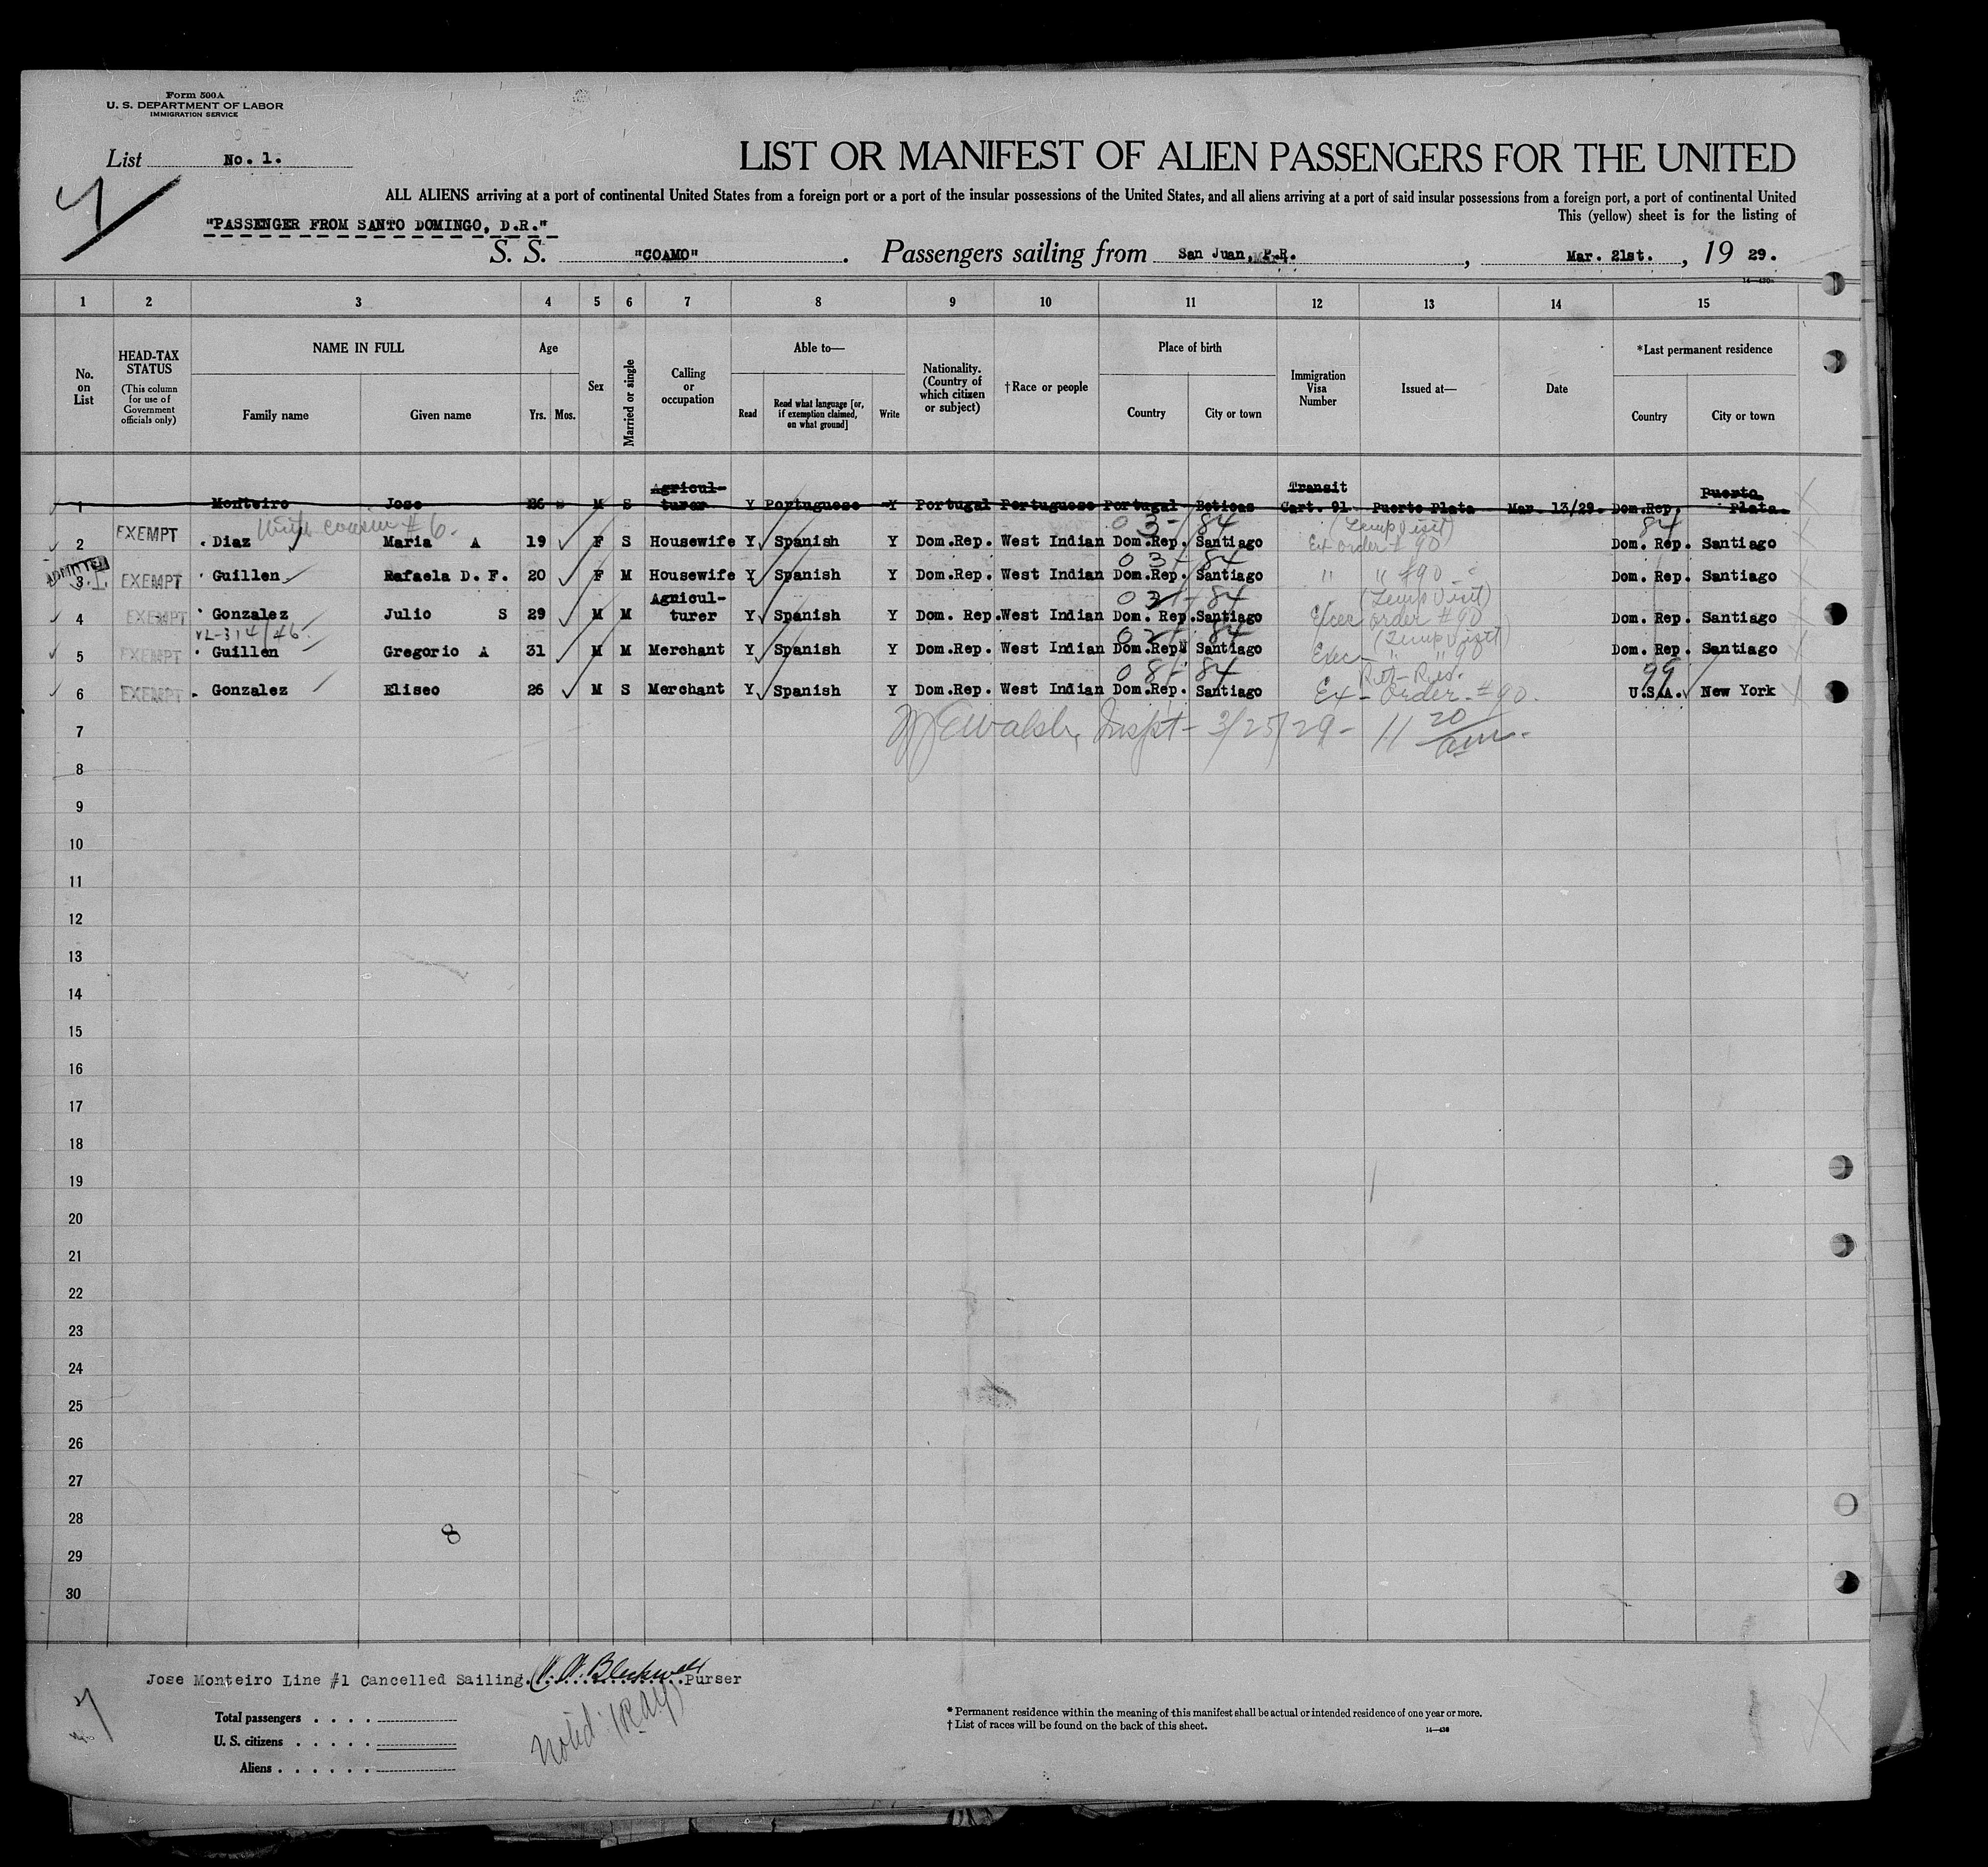 Form 500A
U. S. DEPARTMENT OF LABOR
IMMIGRATION SERVICE
List No. 1.
LIST OR MANIFEST OF ALIEN PASSENGERS FOR THE UNITED
ALL ALIENS arriving at a port of continental United States from a foreign port or a port of the insular possessions of the United States, and all aliens arriving at a port of said insular possessions from a foreign port, a port of continental United
This (yellow) sheet is for the listing of
"PASSENGER FROM SANTO DOMINGO, D.R."
S. S. "COAMO". Passengers sailing from San Juan, P.R., Mar. 21st., 19 29.
1 2 3 4 5 6 7 8 9 10 11 12 13 14 15
No. on List
HEAD-TAX STATUS (This column for use of Government officials only)
NAME IN FULL
Family name Given name
Age
Yrs. Mos.
Sex
Married or single
Calling or occupation
Able to—
Read Read what language [or, if exemption claimed, on what ground] Write
Nationality. (Country of which citizen or subject)
†Race or people
Place of birth
Country City or town
Immigration Visa Number
Issued at—
Date
*Last permanent residence
Country City or town
1 Monteiro Jose 26 M S Agricul-turer Y Portuguese Y Portugal Portuguese Portugal Boticas Transit Cert. 91 Puerto Plata Mar. 13/29. Dom.Rep. Puerto Plata.
With cousin #6. 03-/84 (Temp Visit) 84
2 EXEMPT Diaz Maria A 19 F S Housewife Y Spanish Y Dom.Rep. West Indian Dom.Rep. Santiago Ex order #90 Dom. Rep. Santiago
ADMITTED 03-/84
3 EXEMPT Guillen Rafaela D. F. 20 F M Housewife Y Spanish Y Dom.Rep. West Indian Dom.Rep. Santiago " " #90 Dom. Rep. Santiago
84 (Temp Visit)
4 EXEMPT Gonzalez Julio S 29 M M Agricul-turer Y Spanish Y Dom. Rep. West Indian Dom. Rep. Santiago Exec order #90 Dom. Rep. Santiago
84 (Temp Visit)
5 EXEMPT Guillen Gregorio A 31 M M Merchant Y Spanish Y Dom.Rep. West Indian Dom.Rep. Santiago Exec " " 90 Dom. Rep. Santiago
08/-84 Ret-Res. 99
6 EXEMPT Gonzalez Eliseo 26 M S Merchant Y Spanish Y Dom.Rep. West Indian Dom.Rep. Santiago Ex-Order-#90. U.S.A. New York
7 Walsh, Inspt- 3/25/29- 11 20/am.
8
9
10
11
12
13
14
15
16
17
18
19
20
21
22
23
24
25
26
27
28
8
29
30
Jose Monteiro Line #1 Cancelled Sailing. Purser
Noted:
Total passengers . . . .
U. S. citizens . . . . .
Aliens . . . . . .
* Permanent residence within the meaning of this manifest shall be actual or intended residence of one year or more.
† List of races will be found on the back of this sheet.
14—430